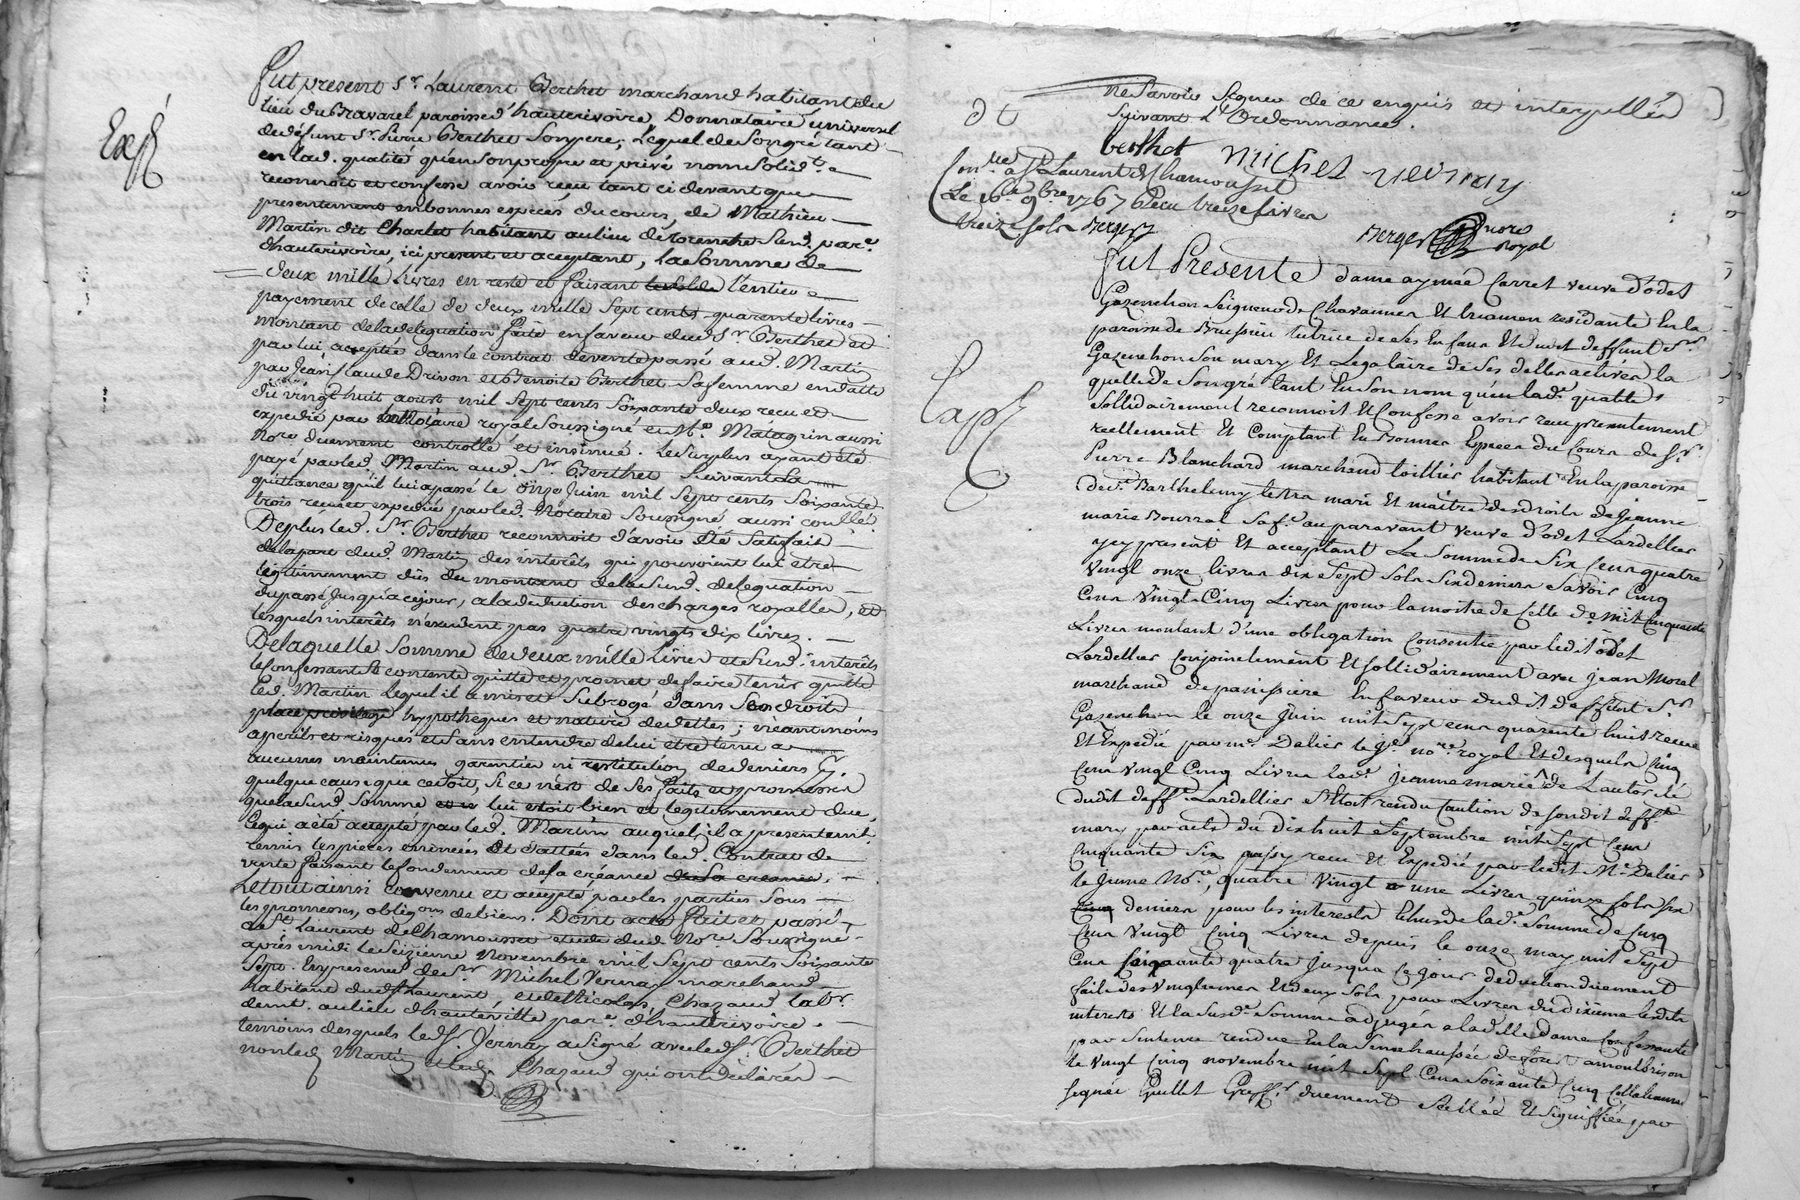 Exp
fut present Sr. Laurent Berthet marchand habitant du
lieu du Gravarel paroisse d'hauterivoire Donnataire universel
de défunt Sr. Pierre Berthet Son pere, Lequel de Son gré tant
en lad. qualité qu'en Son propre et privé nom solidt.
reconnoit et confesse avoir reçu tant ci devant que
presentement en bonnes especes du cours, de Mathieu
Martin dit Charlet habitant au lieu de Sud. par.e
d'hauterivoire, ici present et acceptant, La Somme de
deux mille Livres en reste et faisant le solde l'entier
payement de celle de deux mille Sept cents quarente livres
montant de la delegation faite en faveur dud Sr. Berthet et
par lui acceptée dans le contrat de vente passé aud. Martin
par Jean Claude Drivon et Benoite Berthet Sa femme en datte
du vingt huit aoust mil Sept cents Soixante deux reçu et
expedié par le Notaire royal Soussigné et Me. Matagrin aussi
Nore duement controllé et insinué. Le Surplus ayant été
payé par led. Martin aud. Sr. Berthet Suivant la
quittance qu'il lui a passé le onze Juin mil Sept cents Soixante
trois reçue et expediée par led. Notaire Soussigné, aussi conllé
De plus led. Sr. Berthet reconnoit d'avoir été Satisfait
de la part dud. Martin des interêts qui pouvoient lui etre
legitimement dûs du montant de la Susd. delegation
du passé jusqu'a ce jour, a la deduction des charges royalles, et
lesquels interêts n'excedent pas quatre vingts dix livres.
De laquelle Somme de deux mille Livres et Susd. interêts
le confessant Se contente quitte et promet de faire tenir quitte
led. Martin Lequel il a mis et Subrogé dans Ses droits
place privilege hypotheques et nature de dettes; néantmoins
a perils et risques et Sans entendre de lui etre tenu a
aucunes maintenues garentier ni restitution de deniers
quelque cause que ce Soit, Si ce n'est de Ses faits et promesses
que la Susd. Somme lui etoit bien et legitimement due,
Ce qui a été accepté par led. Martin auquel il a presentemt.
remis les pieces enoncées Et dattées dans led. Contrat de
vente faisant le fondement de la creance de la creance.
Le tout ainsi convenu et accepté par les parties Sous
les promesses, obligons de biens. Dont acte fait et passé
a St. Laurent de Chamousset etude dud Nore Soussigné
après midi le Seizieme Novembre mil Sept cents Soixante
Sept. En presence de Sr Michel Vernay marchand
habitant dud St Laurent, et de Nicolas Chazaud labr.
demt. au lieu d'hauteville par.e d'hauterivoire
temoins desquels led Sr. Vernay a Signé avec led Sr. Berthet
non led Martin et led. Chazaud qui ont declarés
ne Savoir Signer de ce enquis et interpellés
Suivant L'Ordonnance.
berthet Michel vernay
Conlle a St Laurent de Chamousset
Le 16e 9bre 1767 Recu treize livres
treize sols Berger
Berger nore
royal
Capt
fut Presente dame aymée Carret veuve d'odet
Gazenchon Seigneur de Chavannes Et tramon residante En la
paroisse de Brussieu tutrice de Ses Enfans Et dudit deffunt Sr.
Gazenchon Son mary Et Legataire de Ses dettes actives la
quelle de Son gré tant En Son nom qu'en lad.e qualité
Sollidairement reconnoit Et Confesse avoir reçu presentement
reellement Et Comptant En Bonnes Especes du Cours de Sr.
Pierre Blanchard marchand toillier habitant En la paroisse
de St. Barthelemy lestra mari Et maitre des droits de Jeanne
marie Bourrat Sa fe. auparavant veuve d'odet Lardellier
y cy present Et acceptant La Somme de Six Cens quatre
Vingt onze livres dix Sept Sols Six deniers Savoir Cinq
Cens Vingt Cinq Livres pour la moitié de Celle de mil Cinquante
Livres montant d'une obligation Consentie par ledit odet
Lardellier Conjointement Et Sollidairement avec Jean Morel
marchand de panissiere En faveur dudit deffunt Sr.
Gazenchon le onze Juin mil Sept Cens quarente huit recue
Et Expedié par me. Dalier le Je. nore. royal Et desquels Cinq
Cens Vingt Cinq Livres lade. Jeanne marie de L'autorité
dudit defft. Lardellier S'Etoit rendu Caution de Sondit defft.
mary par acte du dix huit Septembre mil Sept Cens
Cinquante Six passy recu Et Expedié par ledit Me. Dalier
le Jeune Nore., quatre Vingt une Livres quinze Sols Six
Cinq deniers pour les interests Echus de lade. Somme de Cinq
Cens Vingt Cinq Livres depuis le onze may mil Sept
Cens Cinquante quatre Jusqua Ce Jour deduction duement
faite des Vingtiemes Et deux Sols pour Livres du dixieme lesdits
interests Et la Susde. Somme adjugés a ladille dame Confessante
par Sentence rendue En la Senechaussée de forest a montbrison
le Vingt Cinq novembre mil Sept Cens Soixante Cinq Collationné
Signée Guillet Greffr. duement Scellée Et Signiffiée par